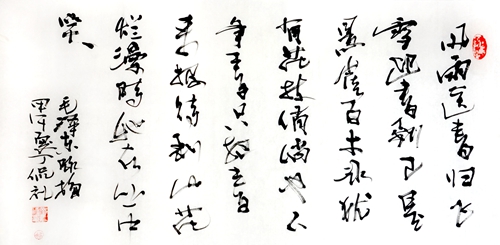 风雨送春归飞
雪迎春到已是
悬崖百丈冰犹
有花枝俏俏也不
争春只把春
来报待到山花
烂漫时她在丛中
笑
毛泽东咏梅